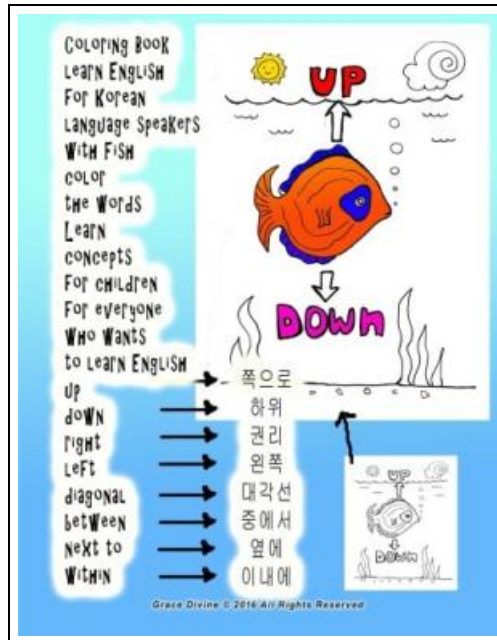 Coloring Book
Learn English
For Korean
Language Speakers
With Fish
color
the Words
Learn
concepts
For children
For everyone
Who Wants
to Learn English
up
down
right
Left
diagonal
between
Next to
Within
쪽으로
하위
권리
왼쪽
대각선
중에서
옆에
이내에
UP
DOWN
UP
DOWN
Grace Divine © 2016 All Rights Reserved